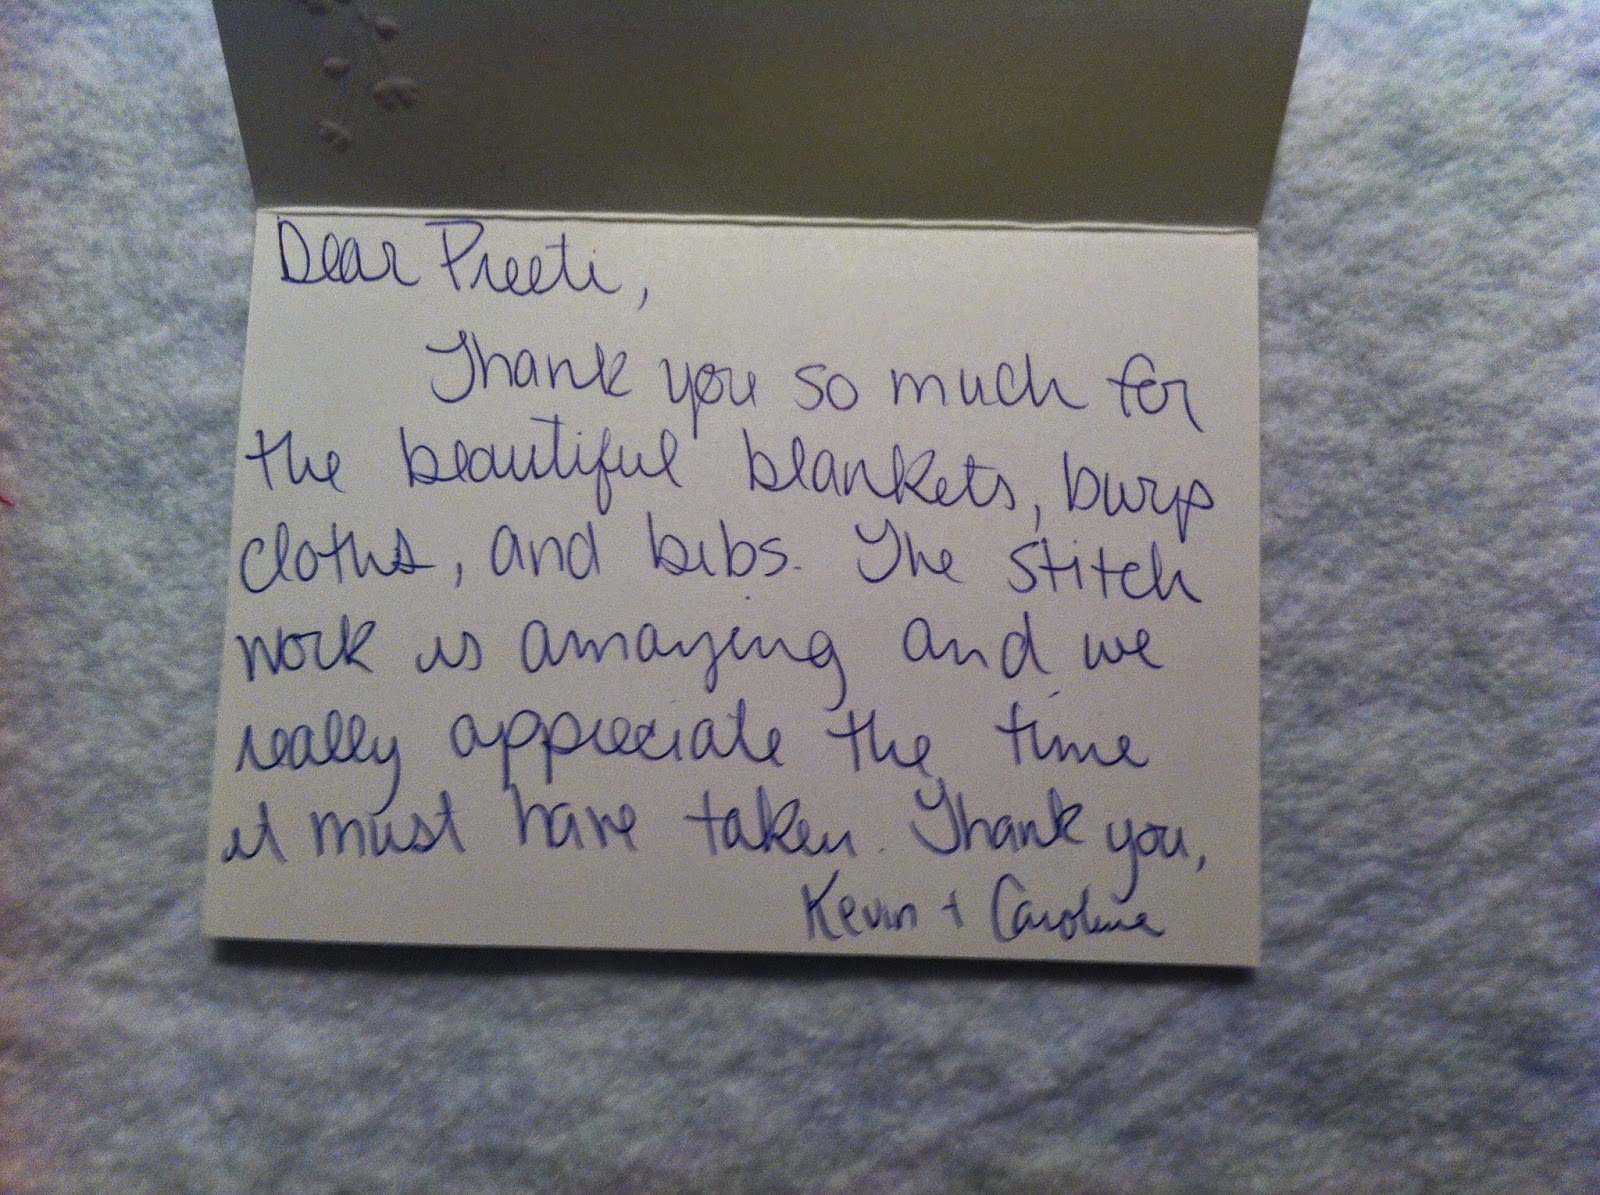 Dear Preeti,
Thank you so much for
the beautiful blankets, burp
cloths, and bibs. The stitch
work is amazing and we
really appreciate the time
it must have taken. Thank you,
Kevin + Caroline